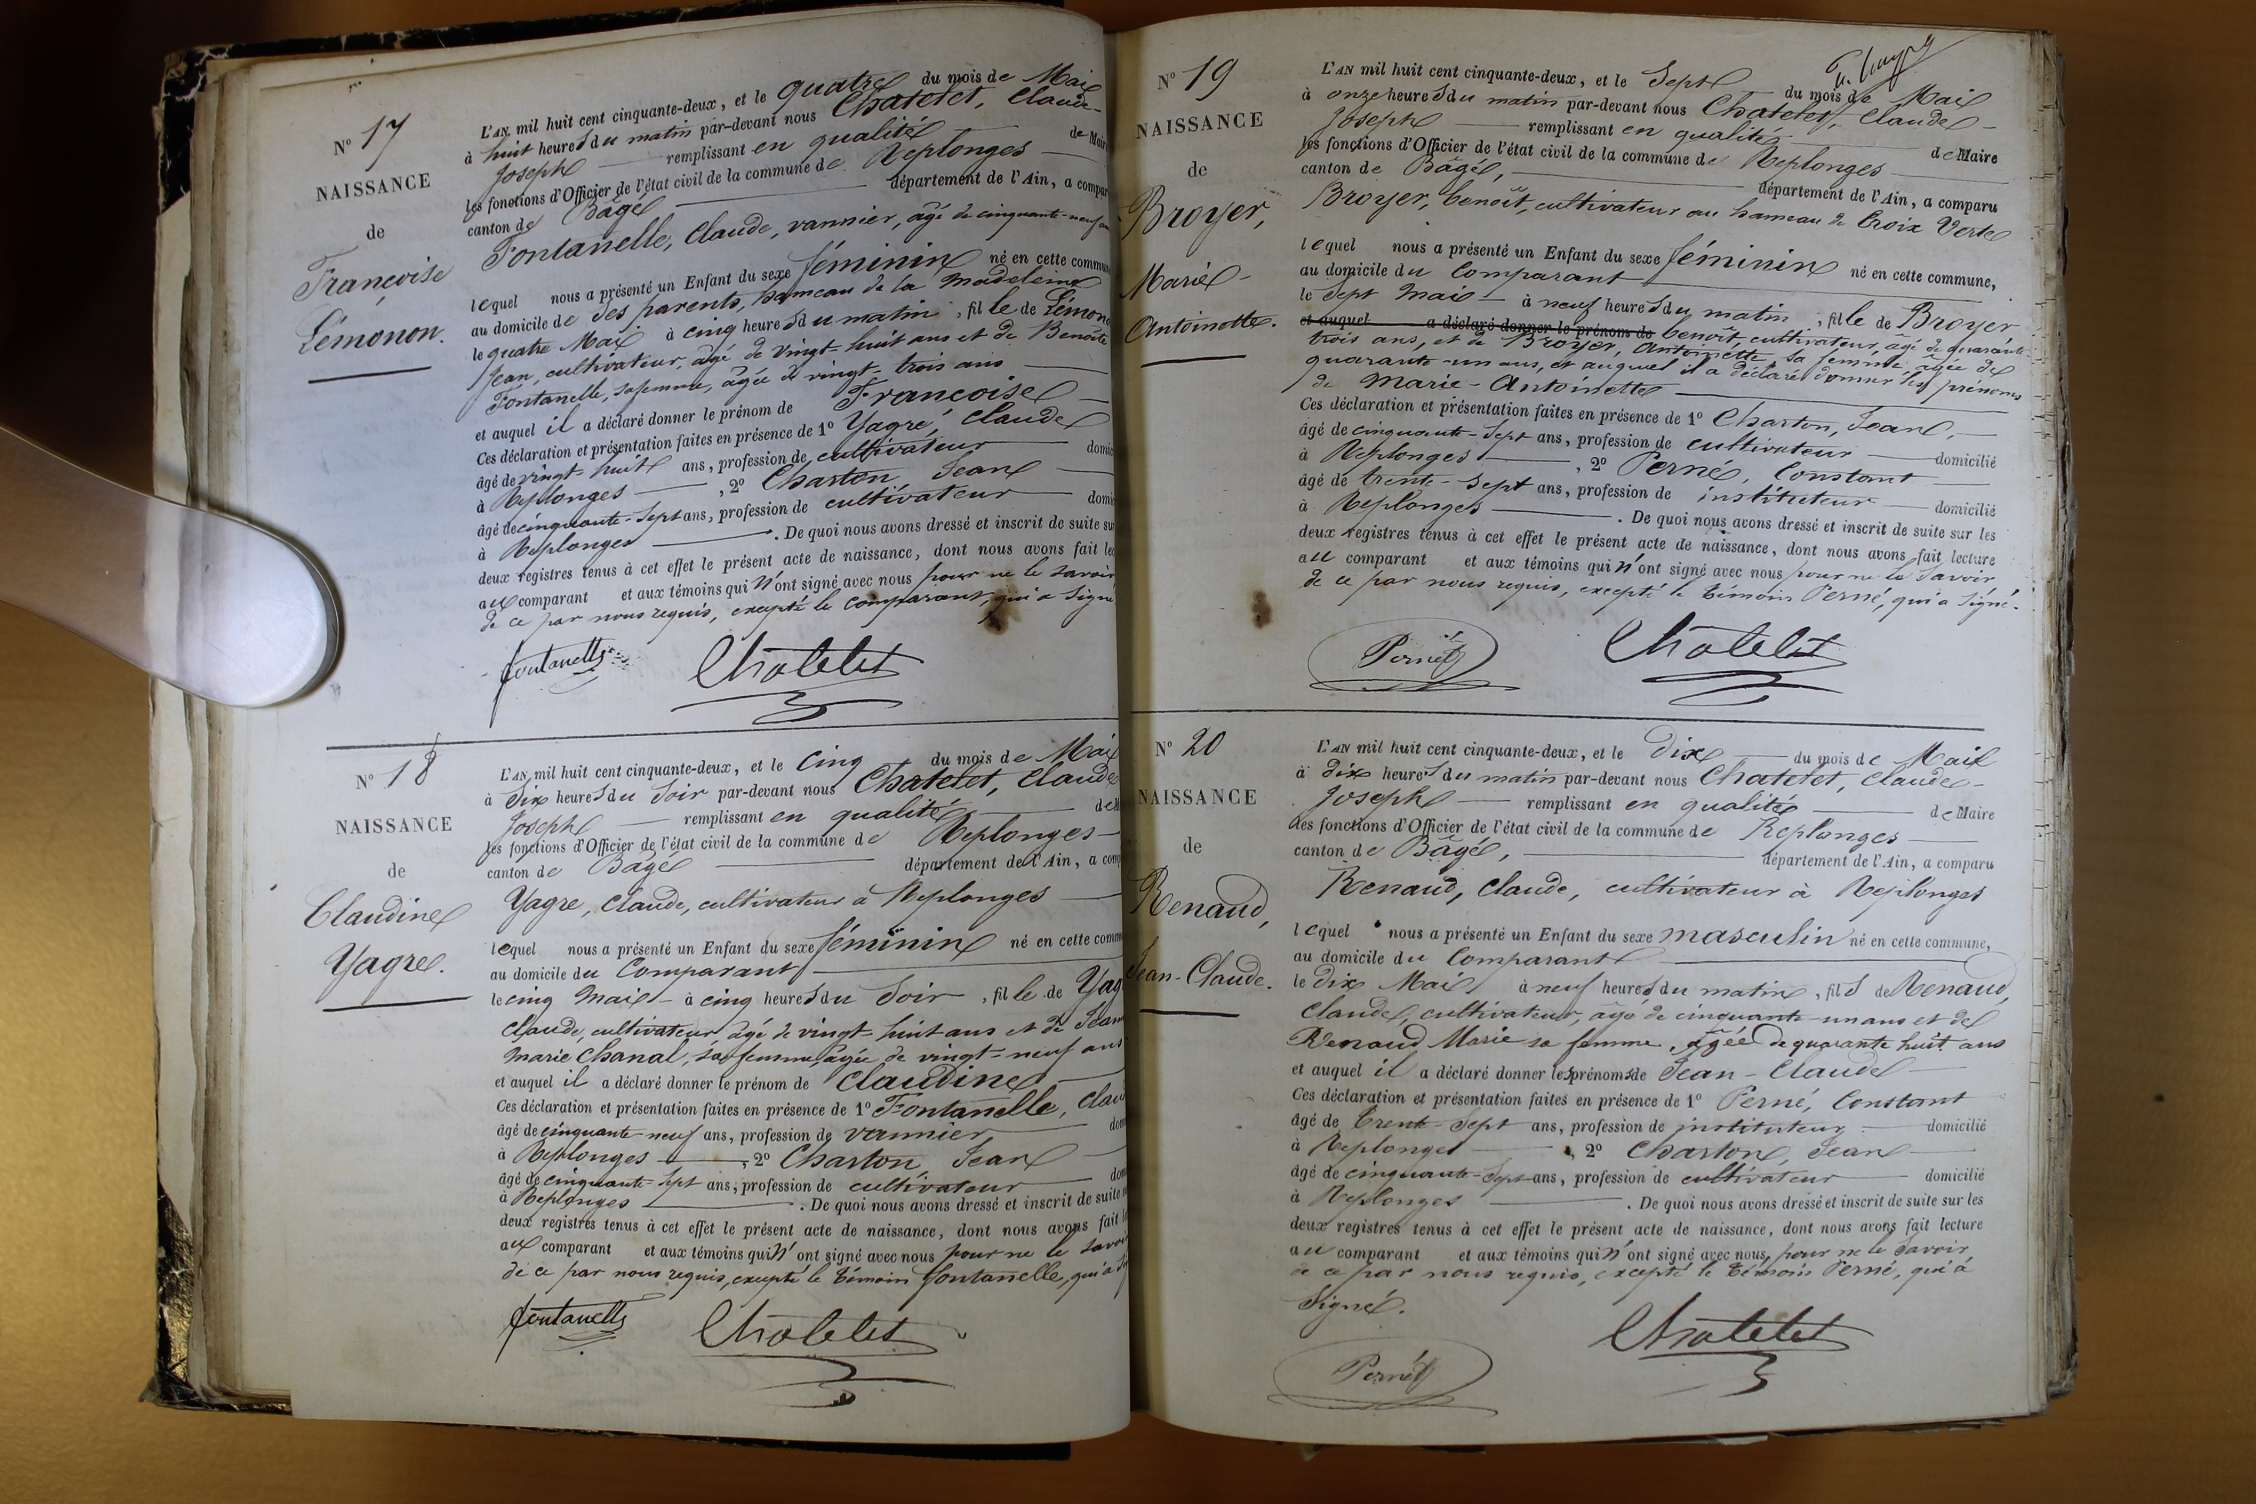 N° 17
NAISSANCE
de
Françoise
Lémonon.
L'AN mil huit cent cinquante-deux, et le quatre du mois de Mai
à huit heures du matin par-devant nous Chatelet, Claude-
Joseph remplissant en qualité de Maire
les fonctions d'Officier de l'état civil de la commune de Replonges
canton de Bâgé département de l'Ain, a compar
Fontanelle, Claude, vannier, âgé de cinquante-neuf an
lequel nous a présenté un Enfant du sexe féminin né en cette commune
au domicile de ses parents, hameau de la Madeleine
le quatre Mai à cinq heures du matin, fille de Lémono
Jean, cultivateur, âgé de vingt-huit ans et de Benoîte
Fontanelle, sa femme, âgée de vingt-trois ans
et auquel il a déclaré donner le prénom de Françoise
Ces déclaration et présentation faites en présence de 1° Yagre, Claude
âgé de vingt-huit ans, profession de cultivateur domic
à Replonges, 2° Charton, Jean
âgé de cinquante-sept ans, profession de cultivateur domic
à Replonges. De quoi nous avons dressé et inscrit de suite su
deux registres tenus à cet effet le présent acte de naissance, dont nous avons fait lec
au comparant et aux témoins qui n'ont signé avec nous pour ne le savoir
de ce par nous requis, excepté le comparant, qui a signé
fontanelle
Chatelet
N° 18
NAISSANCE
de
Claudine
Yagre.
L'AN mil huit cent cinquante-deux, et le cinq du mois de Mai
à six heures du soir par-devant nous Chatelet, Claude
Joseph remplissant en qualité de M
les fonctions d'Officier de l'état civil de la commune de Replonges
canton de Bâgé département de l'Ain, a comp
Yagre, Claude, cultivateur à Replonges
lequel nous a présenté un Enfant du sexe féminin né en cette commu
au domicile du Comparant
le cinq Mai à cinq heures du soir, fille de Yag
Claude, cultivateur, âgé de vingt-huit ans et de Jean
Marie Chanal, sa femme, âgée de vingt-neuf ans
et auquel il a déclaré donner le prénom de Claudine
Ces déclaration et présentation faites en présence de 1° Fontanelle, Clau
âgé de cinquante-neuf ans, profession de vannier, dom
à Replonges, 2° Charton, Jean
âgé de cinquante-sept ans, profession de cultivateur dom
à Replonges. De quoi nous avons dressé et inscrit de suite
deux registres tenus à cet effet le présent acte de naissance, dont nous avons fait l
au comparant et aux témoins qui n'ont signé avec nous pour ne le savoi
de ce par nous requis, excepté le témoin Fontanelle, qui a si
fontanelle
Chatelet
N° 19
NAISSANCE
de
Broyer,
Marie-
Antoinette.
L'AN mil huit cent cinquante-deux, et le Sept du mois de Mai
à onze heures du matin par-devant nous Chatelet, Claude-
Joseph remplissant en qualité de Maire
les fonctions d'Officier de l'état civil de la commune de Replonges
canton de Bâgé, département de l'Ain, a comparu
Broyer, Benoît, cultivateur au hameau de Croix Verte
lequel nous a présenté un Enfant du sexe féminin né en cette commune,
au domicile du Comparant
le sept Mai à neuf heures du matin, fille de Broyer
et auquel a déclaré donner le prénom de Benoît, cultivateur, âgé de quarante-
trois ans, et de Broyer, Antoinette, sa femme, âgée de
quarante-un ans, et auquel il a déclaré donner les prénoms
de Marie-Antoinette
Ces déclaration et présentation faites en présence de 1° Charton, Jean,
âgé de cinquante-sept ans, profession de cultivateur domicilié
à Replonges, 2° Perné, Constant
âgé de trente-sept ans, profession de instituteur domicilié
à Replonges. De quoi nous avons dressé et inscrit de suite sur les
deux registres tenus à cet effet le présent acte de naissance, dont nous avons fait lecture
au comparant et aux témoins qui n'ont signé avec nous pour ne le savoir
de ce par nous requis, excepté le témoin Perné, qui a signé.
Perné
Chatelet
N° 20
NAISSANCE
de
Renaud,
Jean-Claude.
L'AN mil huit cent cinquante-deux, et le dix du mois de Mai
à dix heures du matin par-devant nous Chatelet, Claude-
Joseph remplissant en qualité de Maire
les fonctions d'Officier de l'état civil de la commune de Replonges
canton de Bâgé, département de l'Ain, a comparu
Renaud, Claude, cultivateur à Replonges
lequel nous a présenté un Enfant du sexe masculin né en cette commune,
au domicile du Comparant
le dix Mai à neuf heures du matin, fils de Renaud,
Claude, cultivateur, âgé de cinquante-un ans et de
Renaud Marie sa femme, âgée de quarante huit ans
et auquel il a déclaré donner les prénoms de Jean-Claude
Ces déclaration et présentation faites en présence de 1° Perné, Constant
âgé de trente-sept ans, profession de instituteur domicilié
à Replonges, 2° Charton, Jean
âgé de cinquante-sept ans, profession de cultivateur domicilié
à Replonges. De quoi nous avons dressé et inscrit de suite sur les
deux registres tenus à cet effet le présent acte de naissance, dont nous avons fait lecture
au comparant et aux témoins qui n'ont signé avec nous, pour ne le savoir,
de ce par nous requis, excepté le témoin Perné, qui a
signé.
Perné
Chatelet